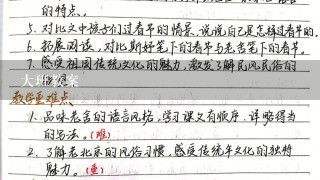 的特点。
5. 对比文中孩子们过春节的情景,说说自己是怎样过春节的。
6. 拓展阅读,对比斯妤笔下的春节与老舍笔下的春节。
7. 感受祖国传统文化的魅力,激发了解民风民俗的
大班教案
教学重难点
1. 品味老舍的语言风格,学习课文有顺序、详略得当
的写法。(难)
2. 了解老北京的风俗习惯,感受传统年文化的独特
魅力。(重)